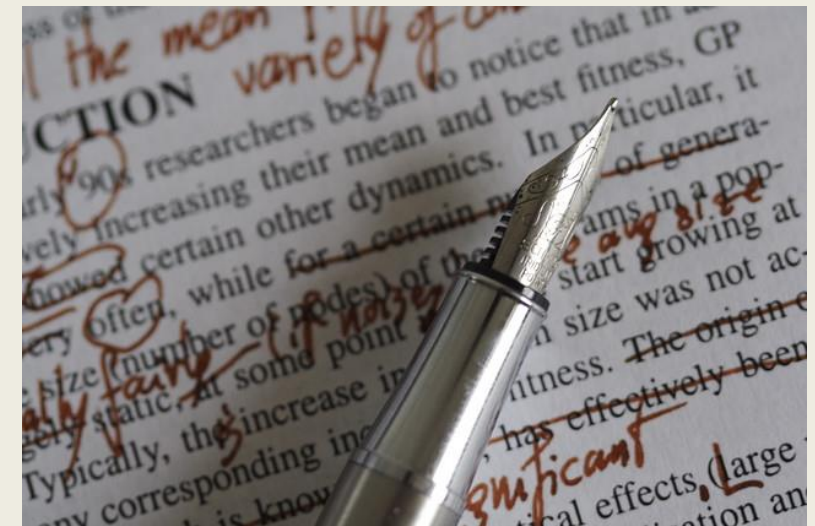 the mean
variety of
UCTION
rly 90s researchers began to notice that in
vely increasing their mean and best fitness, GP
howed certain other dynamics. In particular, it
ery often, while for a certain of genera-
size (number of nodes) of the ams in a pop-
e avg size
(if noise
ally fairly
gely static, at some point start growing at
Typically, the increase in n size was not ac-
any corresponding inc ntness. The origin
is know , has effectively been
gnificant
tical effects, (large
ation and